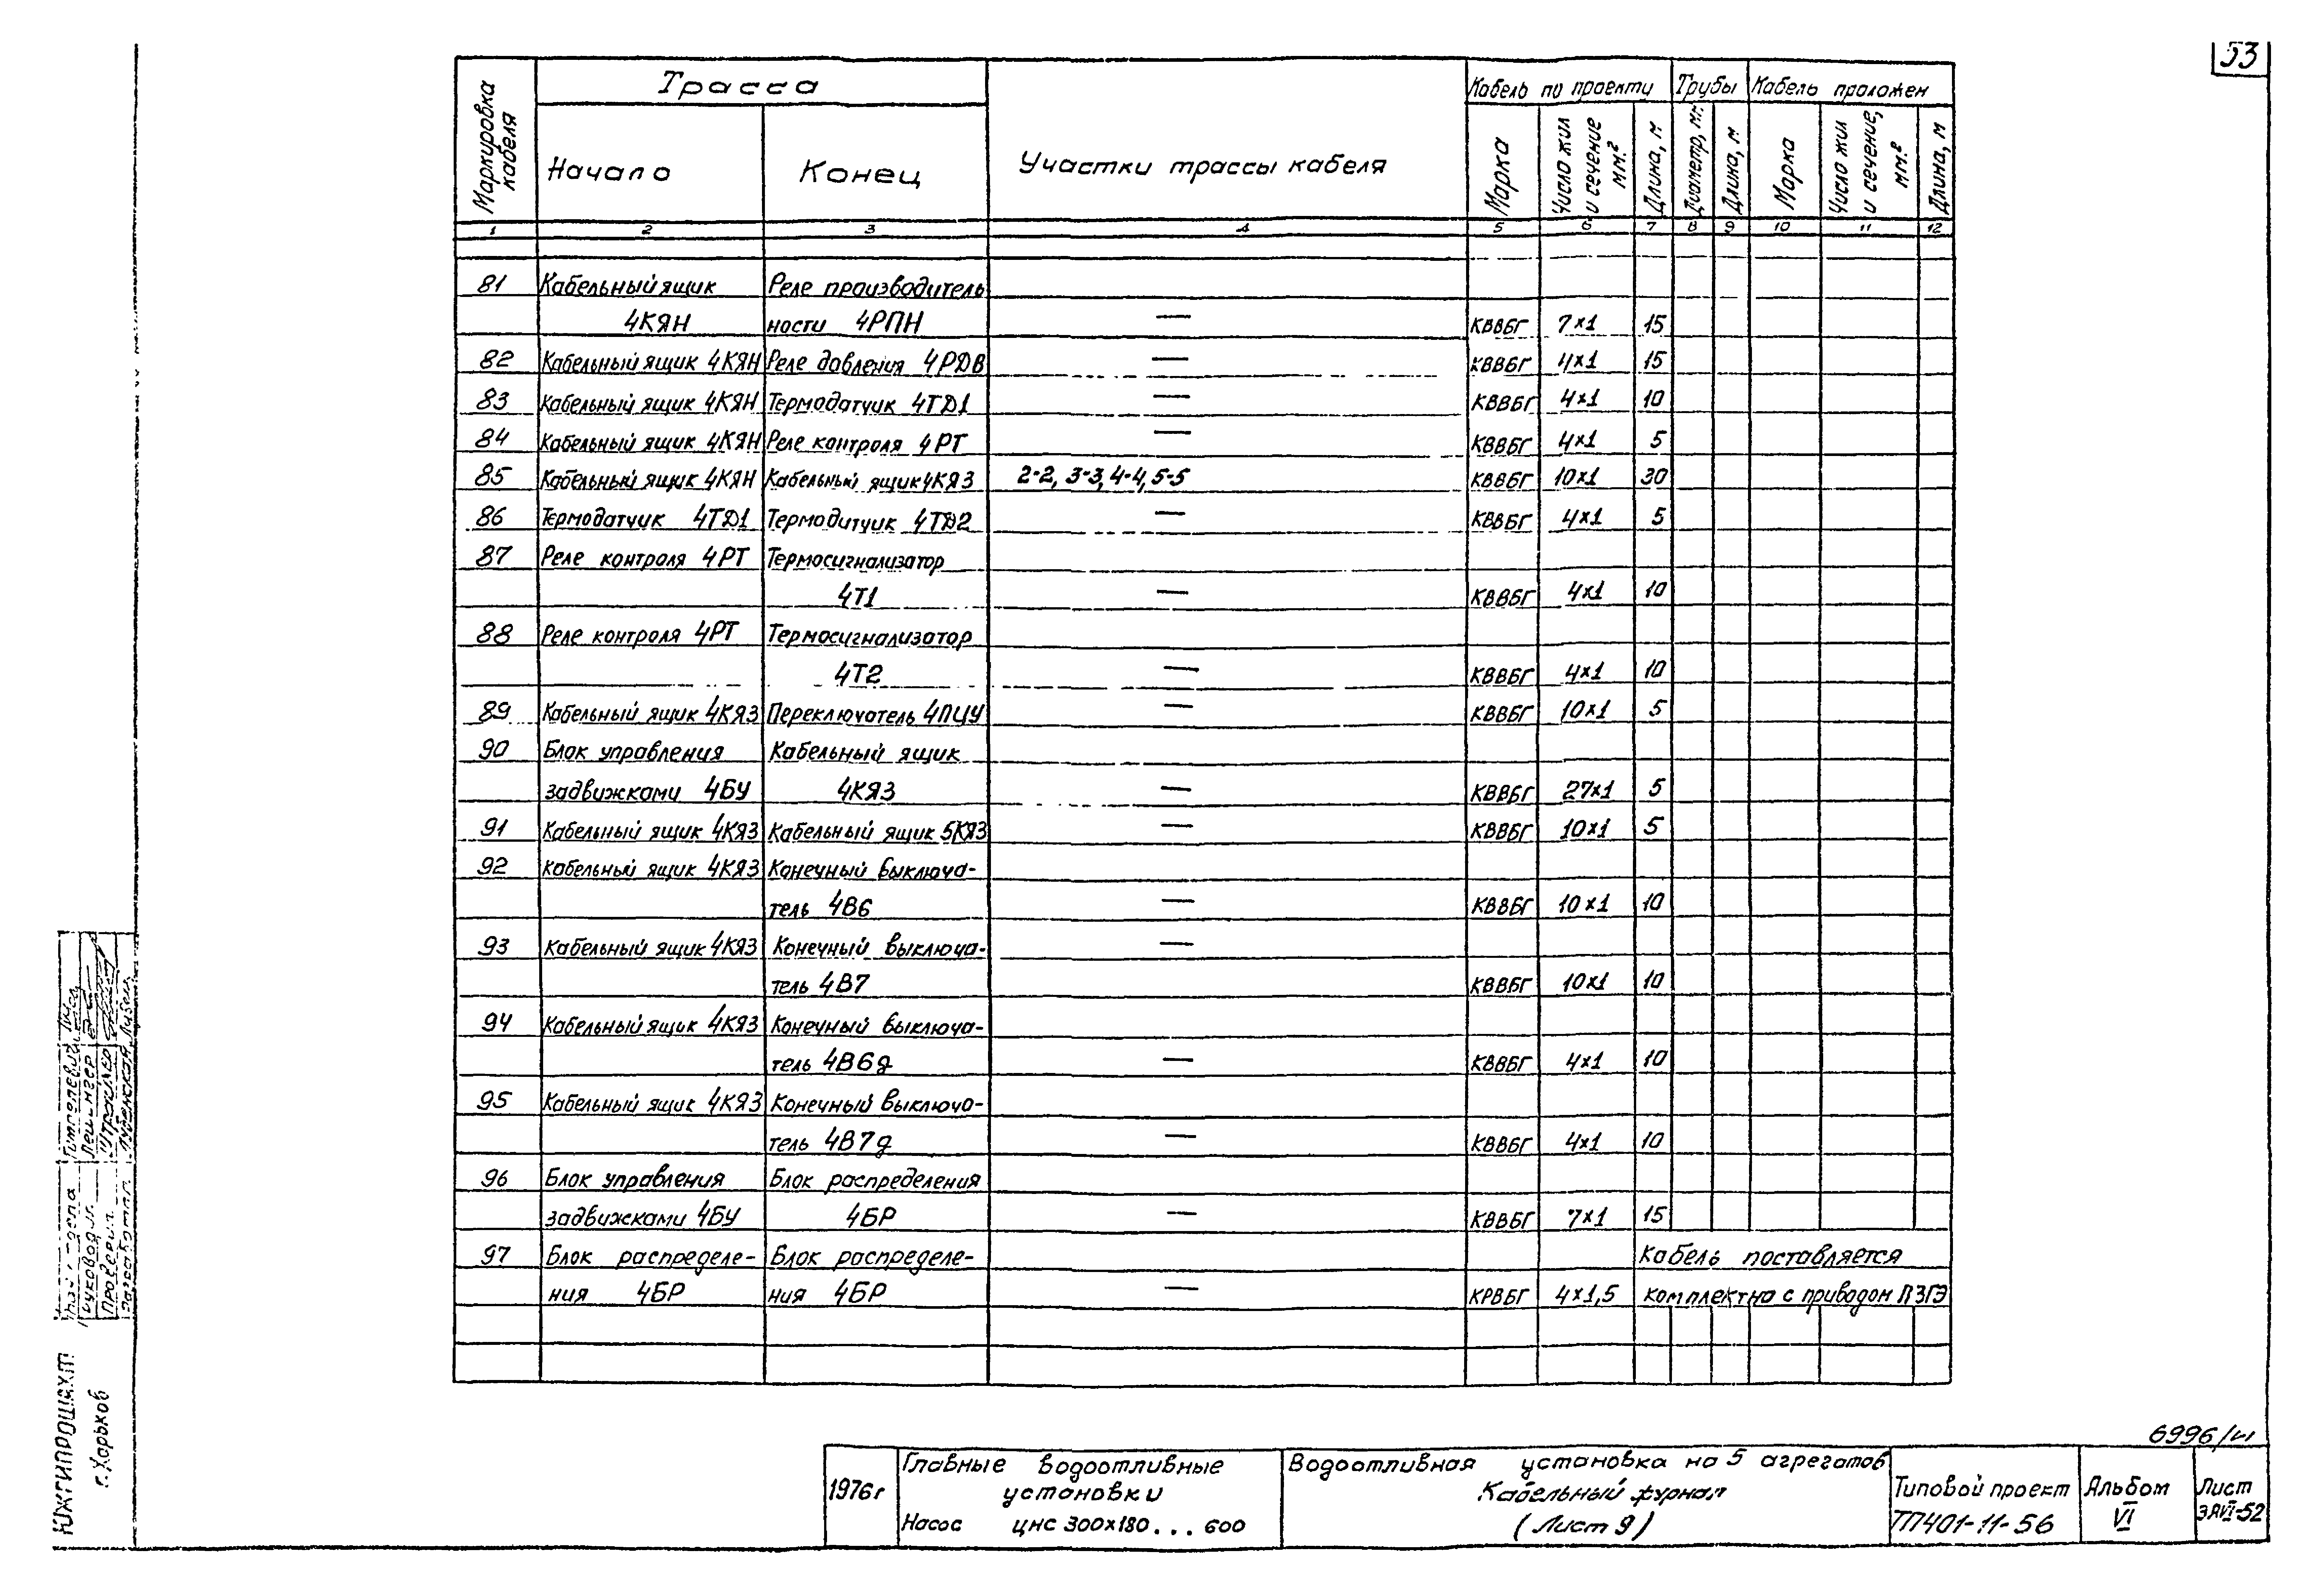 53
Маркировка кабеля
Трасса
Начало
Конец
Участки трассы кабеля
Кабель по проекту
Трубы
Кабель проложен
Марка
Число жил и сечение мм.²
Длина, м
Диаметр, мм.
Длина, м
Марка
Число жил и сечение, мм.²
Длина, м
1 2 3 4 5 6 7 8 9 10 11 12
81 Кабельный ящик Реле производитель
4КЯН ности 4РПН — КВВБГ 7×1 15
82 Кабельный ящик 4КЯН Реле давления 4РДВ — КВВБГ 4×1 15
83 Кабельный ящик 4КЯН Термодатчик 4ТД1 — КВВБГ 4×1 10
84 Кабельный ящик 4КЯН Реле контроля 4РТ — КВВБГ 4×1 5
85 Кабельный ящик 4КЯН Кабельный ящик 4КЯЗ 2-2, 3-3, 4-4, 5-5 КВВБГ 10×1 30
86 Термодатчик 4ТД1 Термодатчик 4ТД2 — КВВБГ 4×1 5
87 Реле контроля 4РТ Термосигнализатор
4Т1 — КВВБГ 4×1 10
88 Реле контроля 4РТ Термосигнализатор
4Т2 — КВВБГ 4×1 10
89 Кабельный ящик 4КЯЗ Переключатель 4ПЦУ — КВВБГ 10×1 5
90 Блок управления Кабельный ящик
задвижками 4БУ 4КЯЗ — КВВБГ 27×1 5
91 Кабельный ящик 4КЯЗ Кабельный ящик 5КЯЗ — КВВБГ 10×1 5
92 Кабельный ящик 4КЯЗ Конечный выключа-
тель 4В6 — КВВБГ 10×1 10
93 Кабельный ящик 4КЯЗ Конечный выключа- —
тель 4В7 КВВБГ 10×1 10
94 Кабельный ящик 4КЯЗ Конечный выключа-
тель 4В6д — КВВБГ 4×1 10
95 Кабельный ящик 4КЯЗ Конечный выключа-
тель 4В7д — КВВБГ 4×1 10
96 Блок управления Блок распределения
задвижками 4БУ 4БР — КВВБГ 7×1 15
97 Блок распределе- Блок распределе- Кабель поставляется
ния 4БР ния 4БР — КРВБГ 4×1,5 комплектно с приводом ПЗГЭ
6996/VI
1976г
Главные водоотливные
установки
Насос ЦНС 300×180...600
Водоотливная установка на 5 агрегатов
Кабельный журнал
(Лист 9)
Типовой проект
ТП401-11-56
Альбом
VI
Лист
ЗАVI-52
Южгипрошахт
г. Харьков